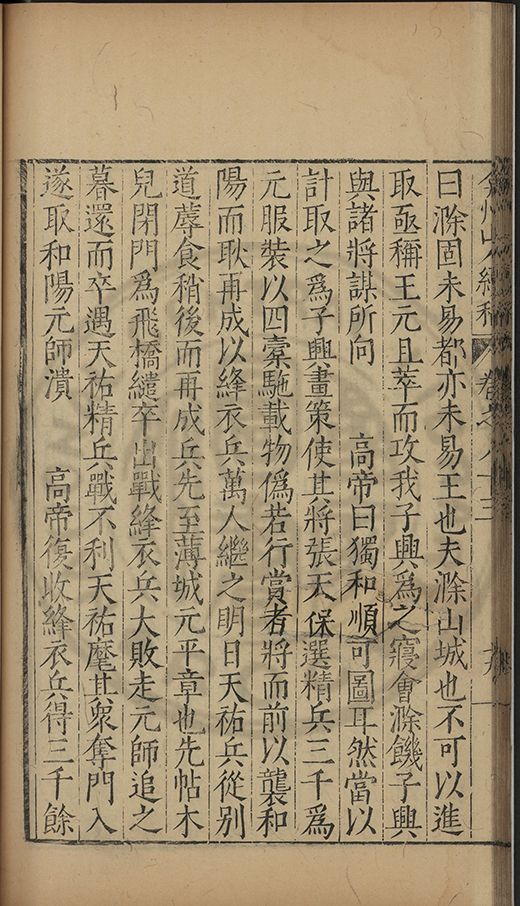 弇州山人續稿 卷之八十三
曰滁固未易都亦未易王也夫滁山城也不可以進
取亟稱王元且萃而攻我子興爲之寢會滁饑子興
與諸將謀所向　高帝曰獨和順可圖且然當以
計取之爲子興畫策使其將張天保選精兵三千爲
元服裝以四橐駞載物僞若行賞者將而前以襲和
陽而耿再成以絳衣兵萬人繼之明日天祐兵從別
道蓐食稍後而再成兵先至薄城元平章也先帖木
兒閉門爲飛橋縋卒出戰絳衣兵大敗走元師追之
暮還而卒遇天祐精兵戰不利天祐麾其衆奪門入
遂取和陽元師潰　高帝復收絳衣兵得三千餘